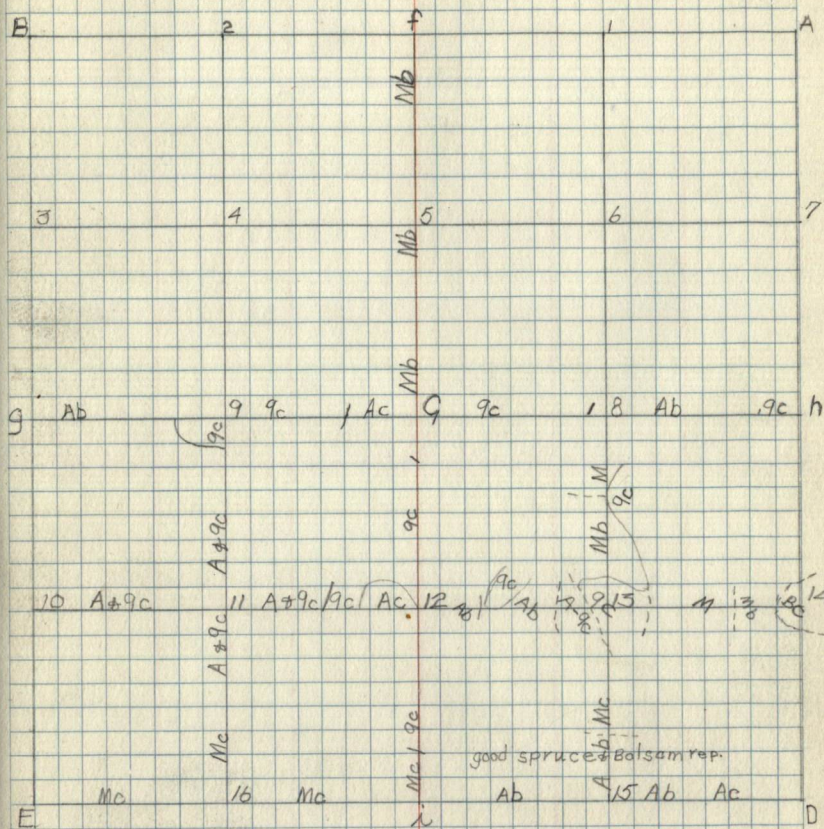 B 2 f 1 A
Mb
3 4 5 6 7
Mb
Mb
g Ab 9 9c Ac G 9c 8 Ab 9c h
9c
M
9c
A&9c 9c Mb
10 A&9c 11 A&9c 9c Ac 12 Ab 9c Ab A 9c 13 M Ac 14
9c
A&9c
Mc Mc 9c Mc
good spruce & Balsam rep.
Ab
E Mc 16 Mc i Ab 15 Ab Ac D